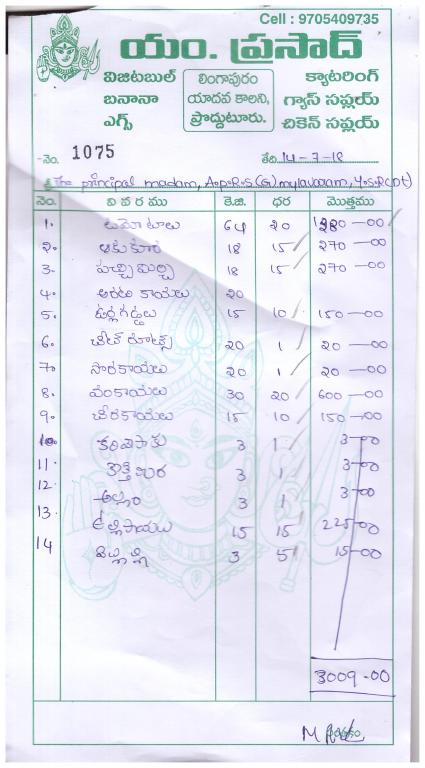 Cell : 9705409735
యం. ప్రసాద్
విజిటబుల్ లింగాపురం క్యాటరింగ్
బనానా యాదవ కాలని, గ్యాస్ సప్లయ్
ఎగ్స్ ప్రొద్దుటూరు. చికెన్ సప్లయ్
నెం. 1075 తేది 14-7-18
The principal madam, A.P.R.S (G) mylavaram, Y.S.R (Dt)
నెం. వివరము కె.జి. ధర మొత్తము
1. టమోటాలు 64 20 1280-00
2. ఆకుకూర 18 15 270-00
3. పచ్చిమిర్చి 18 15 270-00
4. అరటి కాయలు 20
5. ఉర్లగడ్డలు 15 10 150-00
6. బీట్ రూట్స్ 20 1 20-00
7. సొరకాయలు 20 1 20-00
8. వంకాయలు 30 20 600-00
9. బీరకాయలు 15 10 150-00
10. కరివేపాకు 3 1 3-00
11. కొత్తిమీర 3 1 3-00
12. అల్లం 3 1 3-00
13. ఉల్లిపాయలు 15 15 225-00
14 3 5 15-00
3009-00